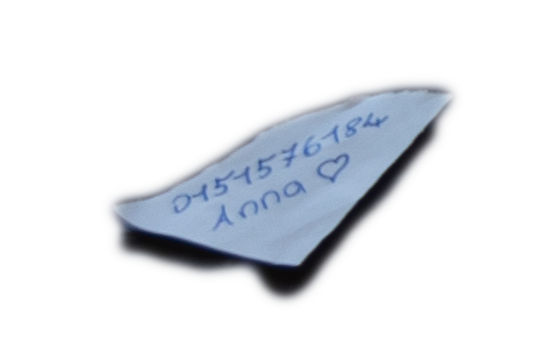 0151576184
Anna ♡